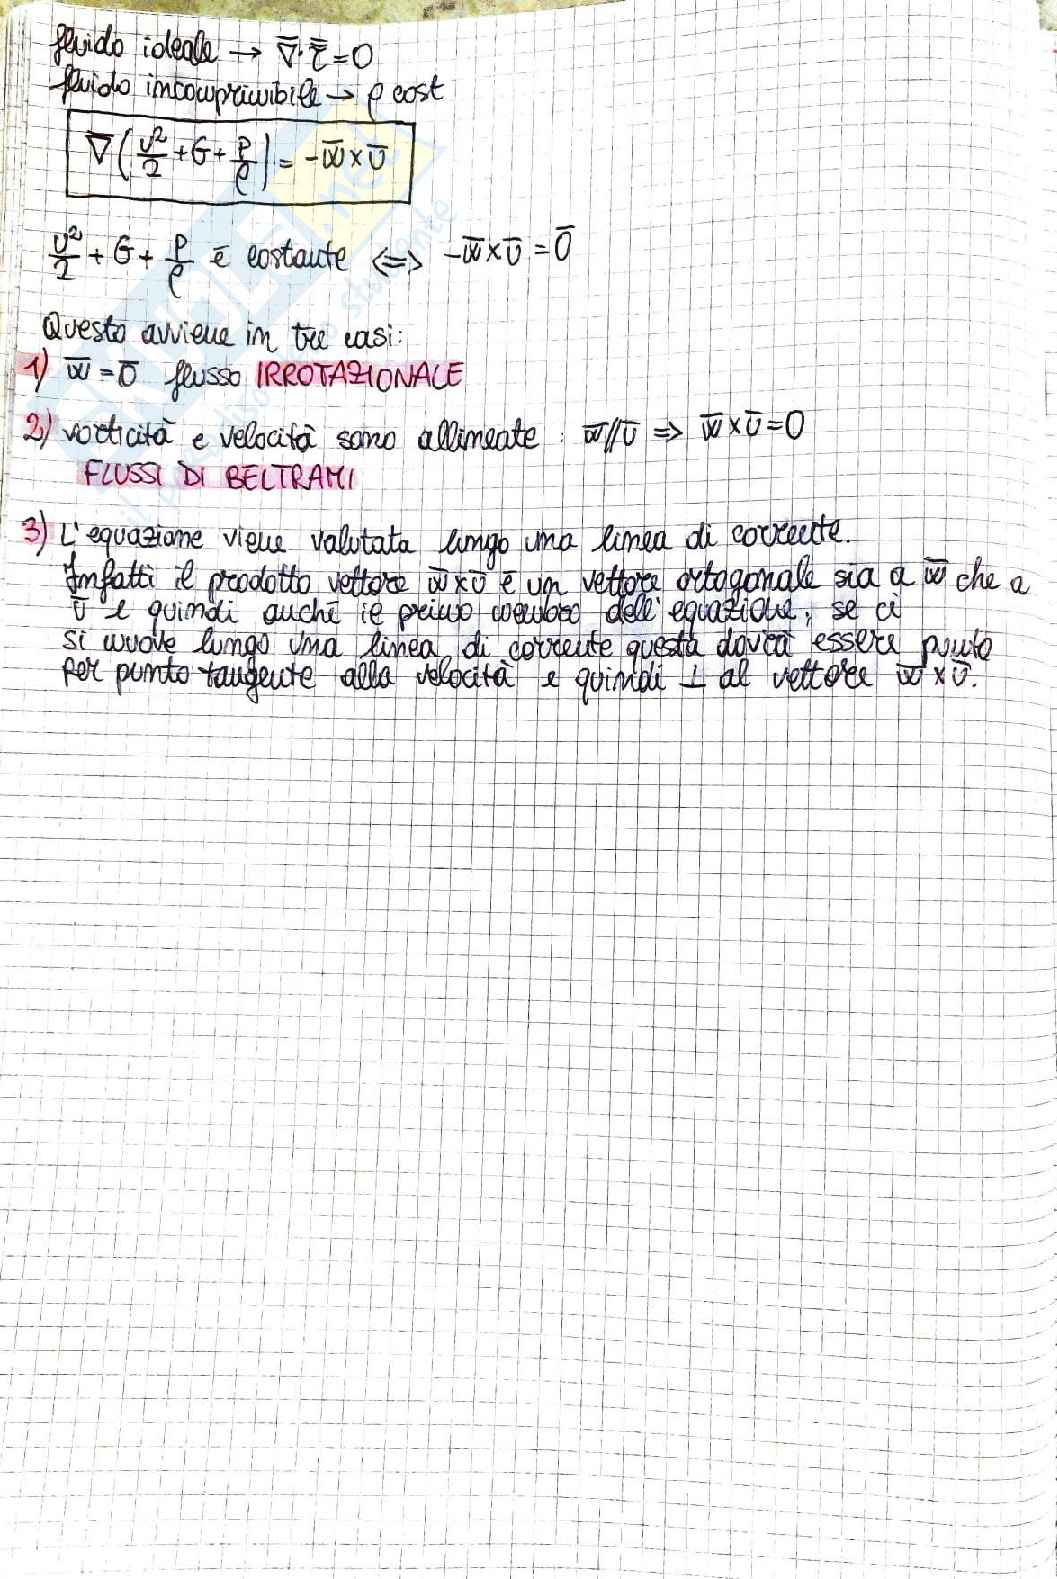 fluido ideale → ∇̄·τ̿ = 0
fluido incomprimibile → ρ cost
∇̄ (U²/2 + G + P/ρ) = -w̄ × Ū
U²/2 + G + P/ρ è costante <=> -w̄ × Ū = 0̄
Questo avviene in tre casi:
1) w̄ = 0̄ flusso IRROTAZIONALE
2) vorticità e velocità sono allineate : w̄ // Ū => w̄ × Ū = 0
FLUSSI DI BELTRAMI
3) L'equazione viene valutata lungo una linea di corrente.
Infatti il prodotto vettore w̄ × Ū è un vettore ortogonale sia a w̄ che a
Ū e quindi anche il primo membro dell'equazione, se ci
si muove lungo una linea di corrente questa dovrà essere punto
per punto tangente alla velocità e quindi ⊥ al vettore w̄ × Ū.